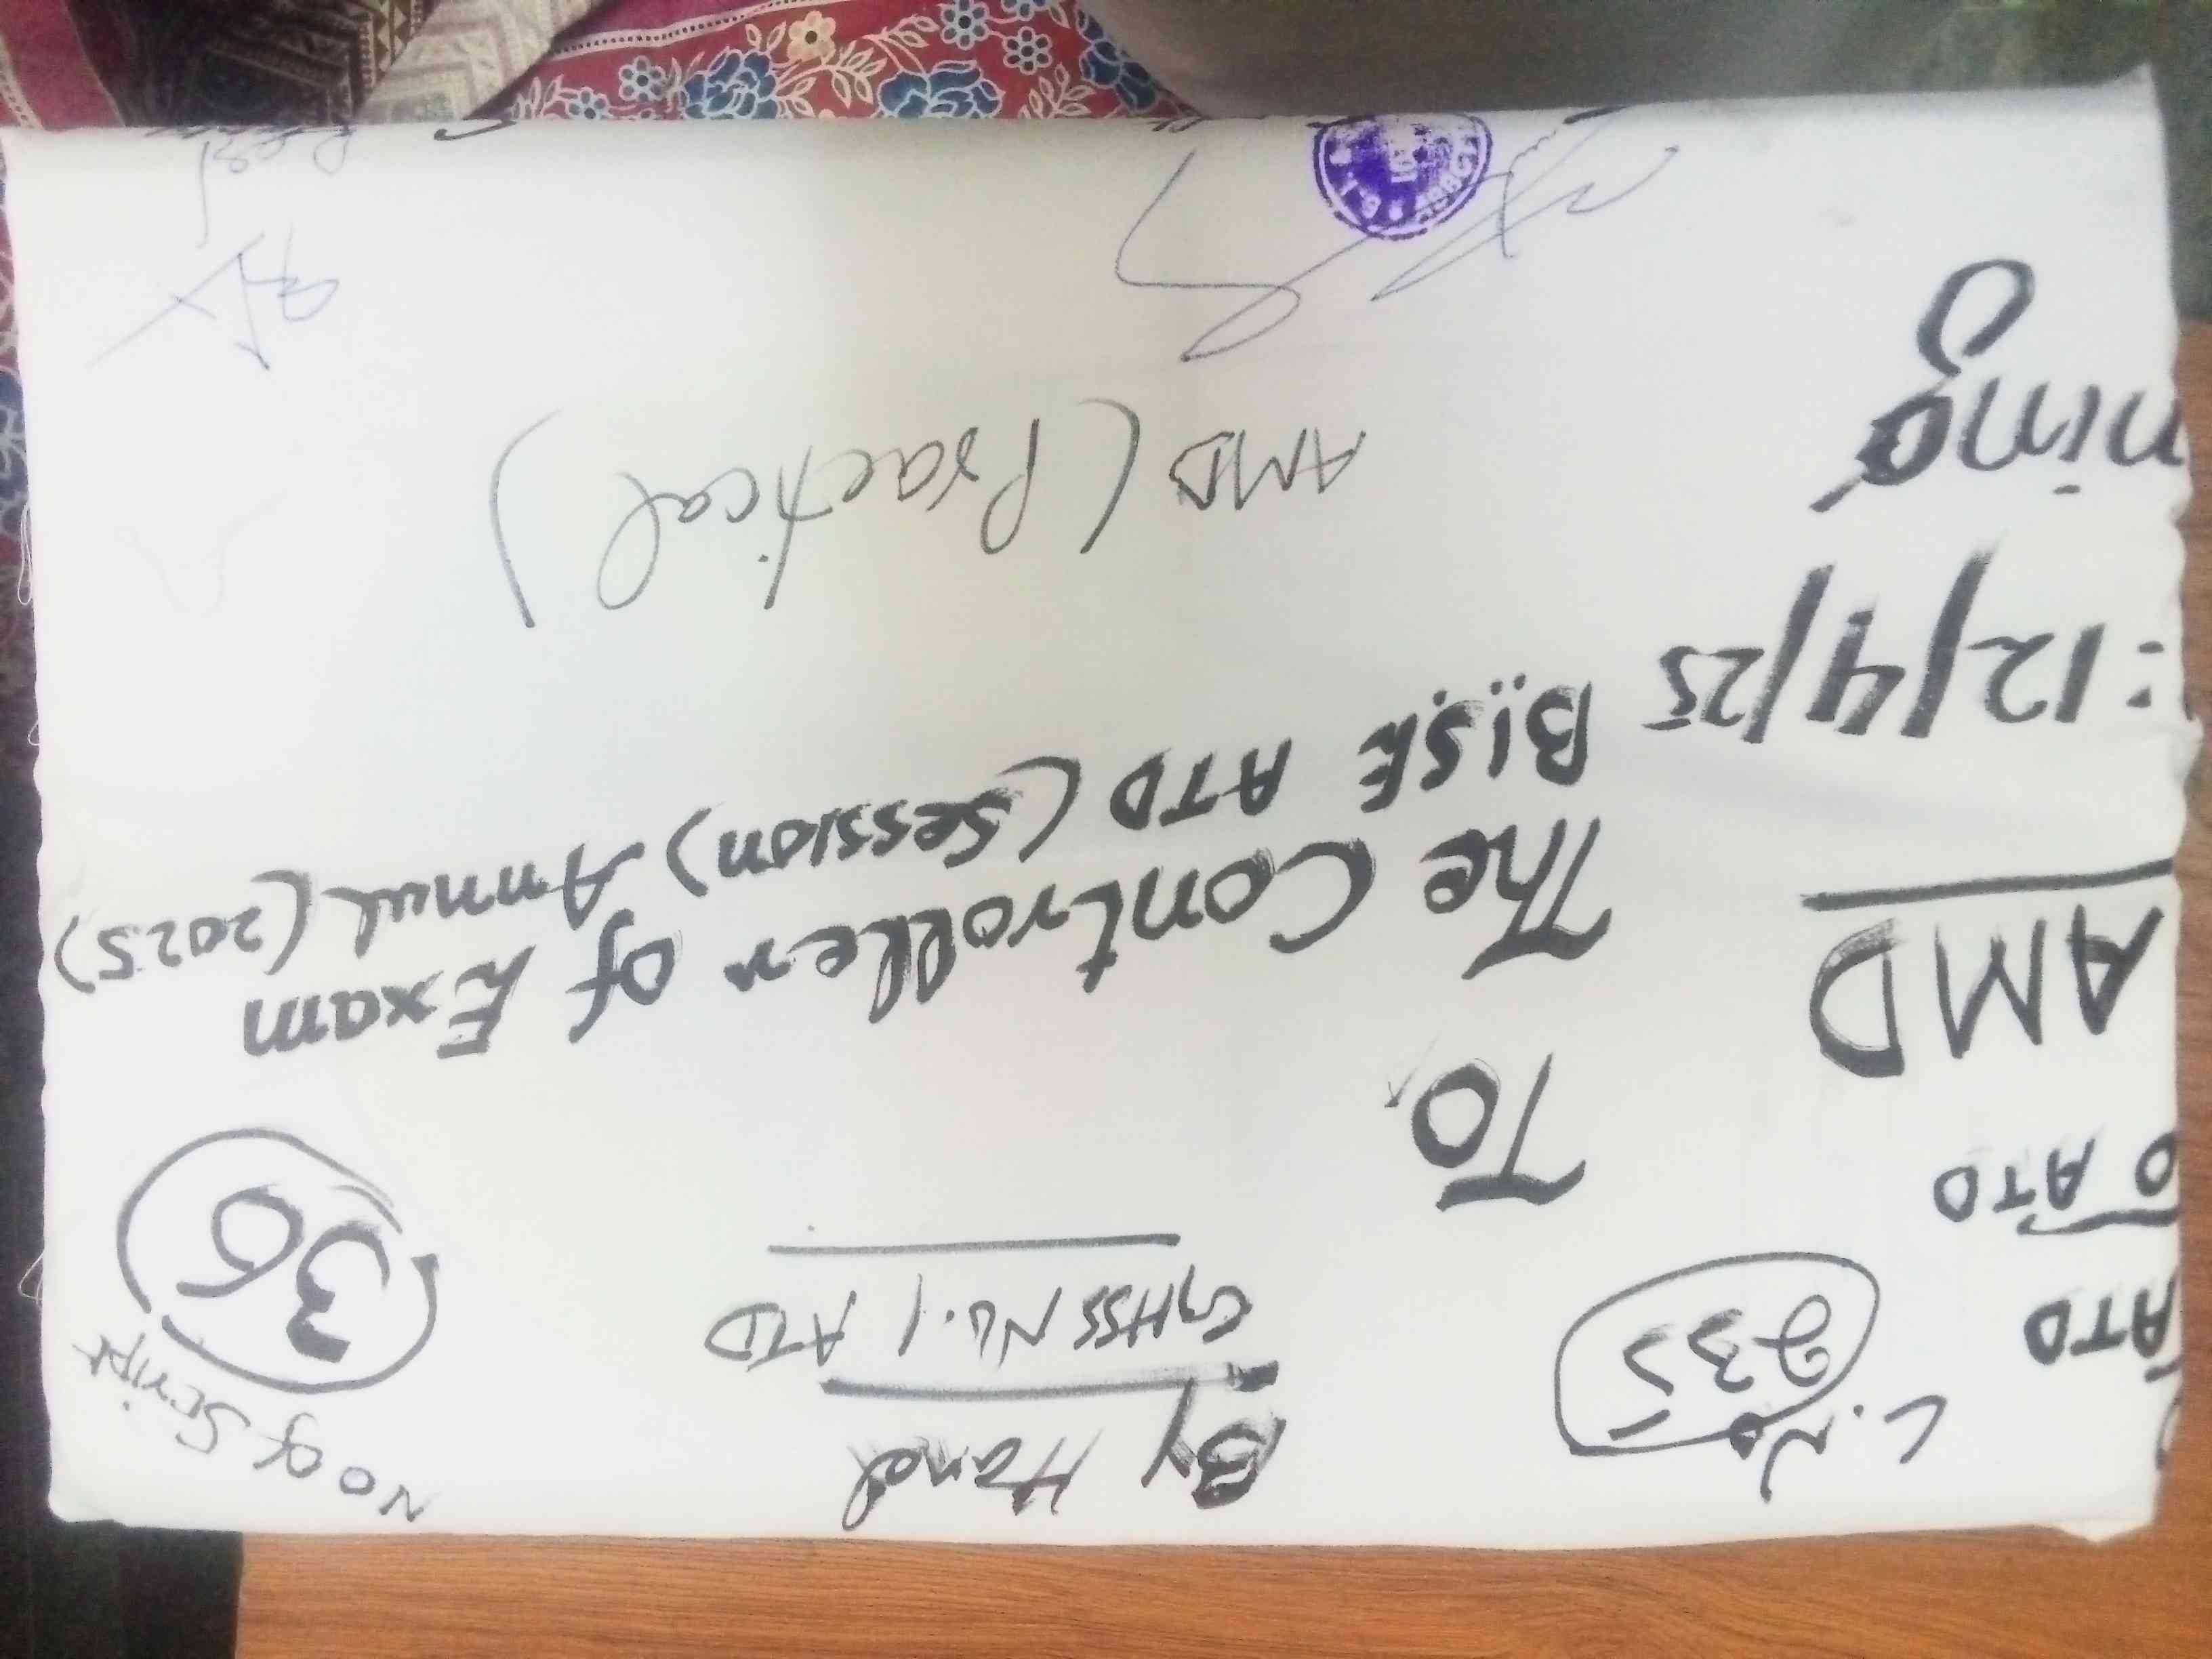 No of Script
C. No
By Hand
235
36
ATD
GHSS No. 1 ATD
O ATD
To,
AMD
The Controller of Exam
BISE ATD (Session) Annul (2025)
:12/4/25
AMD (Practical)
ning